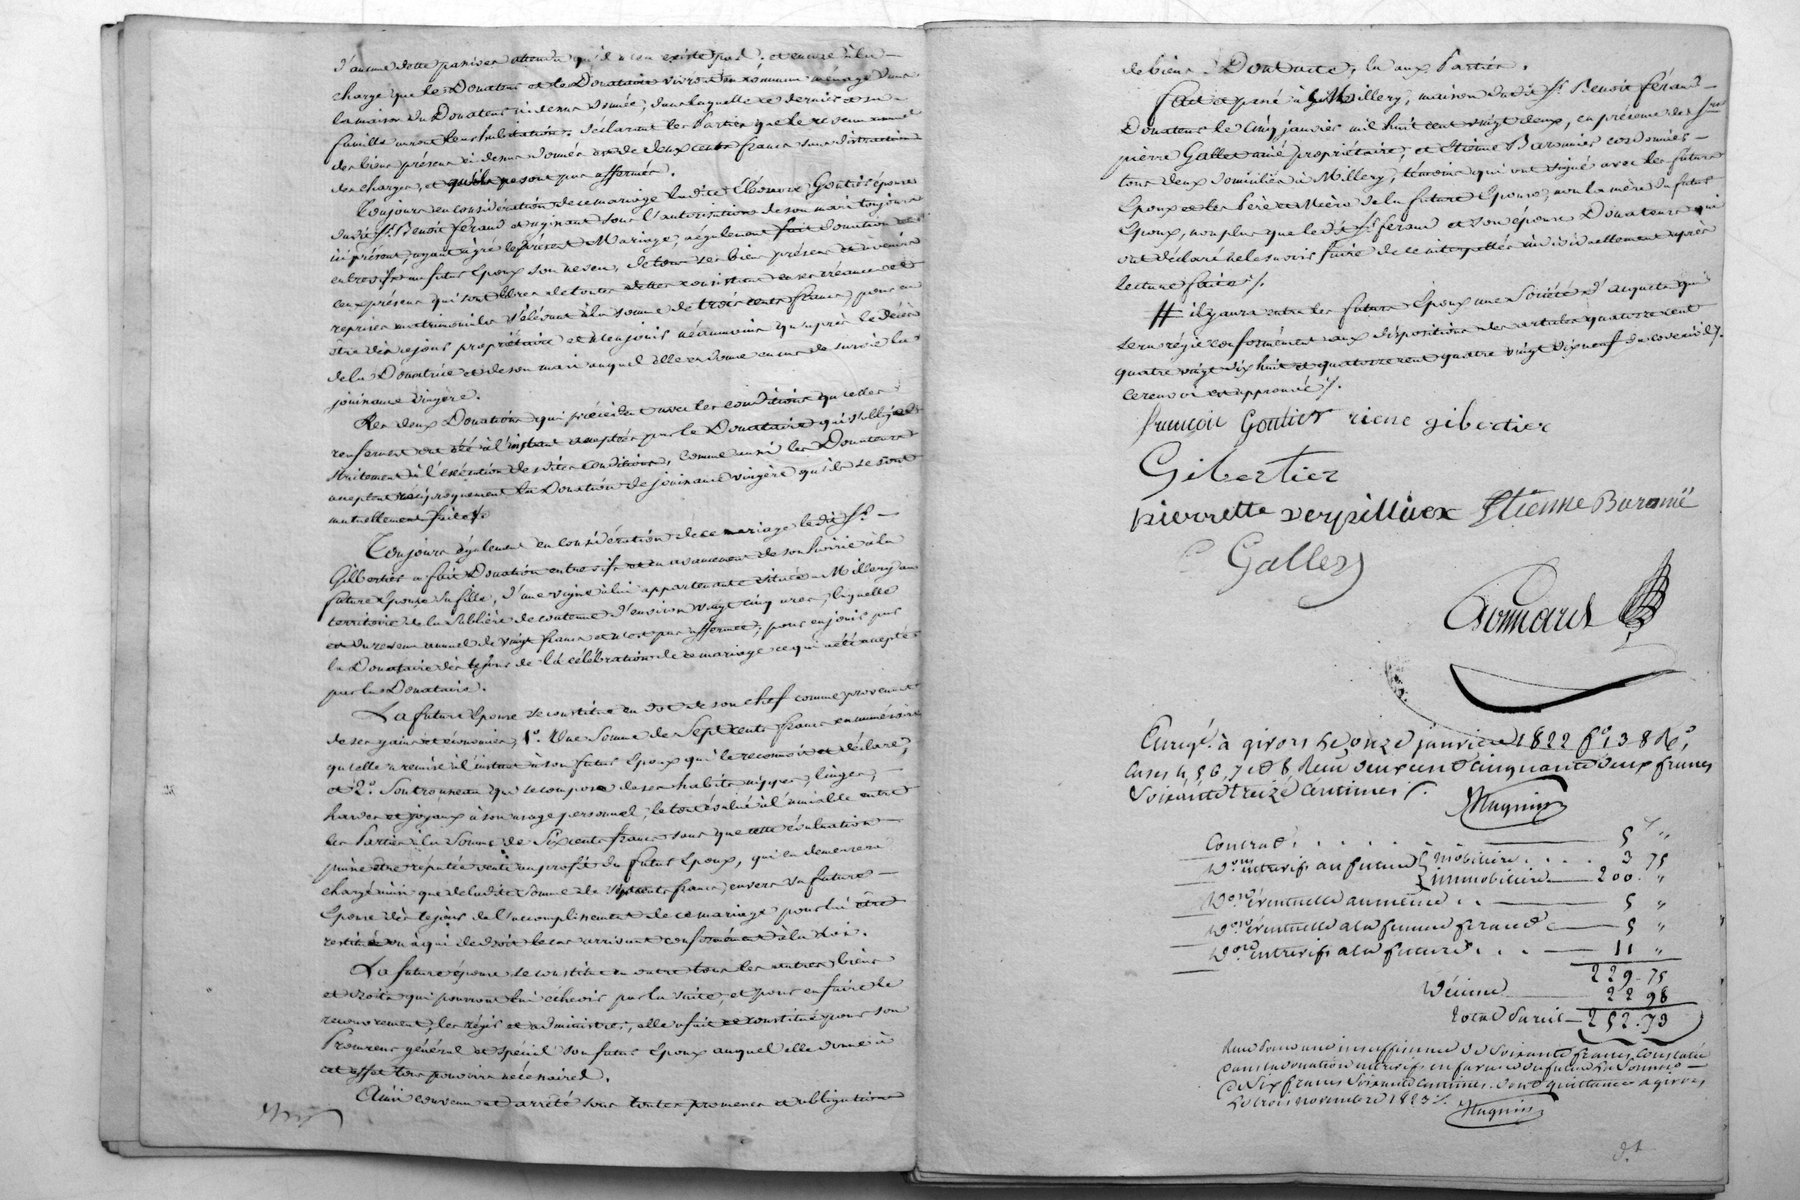 d'aucune dette passives attendu qu'il n'en existe pas; et encore à la
charge que le Donateur et le Donataire vivront en commun ménage dans
la maison du Donateur ci dessus donnée, dans laquelle ce dernier et sa
famille auront leur habitation. Déclarant les Parties que le revenu annuel
des biens présens ci dessus donnés est de deux cents francs sans distraction
des charges, et qu'ils ne sont pas affermés.
Toujours en considération de ce mariage ladite Eléonore Gontier épouse
dudit Sr. Benoit feraud et agissant sous l'autorisation de son mari toujours
ici présent, ayant agréé le présent Mariage, a également fait donation
entrevifs au futur Epoux son neveu, de tous ses biens présens et avenir
ceux présens qui sont libres de toutes dettes consistant en ses créances et
reprises matrimoniales s'élevant à la somme de trois cents francs, pour en
être dès ce jour propriétaire et n'en jouir néanmoins qu'après le décès
de la Donatrice et de son mari auquel elle en donne en cas de survie la
jouissance viagère.
Les deux Donations qui précèdent avec les conditions qu'elles
renferment ont été à l'instant acceptées par le Donataire qui s'oblige
strictement à l'exécution desdites conditions, comme aussi les Donateurs
acceptent réciproquement la Donation de jouissance viagère qu'ils se sont
mutuellement faite /.
Toujours également en considération de ce mariage le dit Sr.
Gibertier a fait Donation entrevifs et en avancement de son hoirie à la
future Epouse sa fille, d'une vigne à lui appartenante située à Millery au
territoire de la Sablière de contenue d'environ vingt cinq ares, laquelle
est du revenu annuel de vingt francs et n'est pas affermée; pour en jouir par
la Donataire dès le jour de la célébration de ce mariage ce qui a été accepté
par la Donataire.
La future Epouse se constitue en dot de son chef comme provenant
de ses gains et économies, 1o. Une Somme de Sept cents francs en numéraire
qu'elle a remise à l'instant à son futur Epoux qui le reconnoit et déclare,
et 2o. Son trousseau qui se compose de ses habits nippes, linges,
hardes et joyaux à son usage personnel, le tout évalué à l'amiable entre
les Parties à la Somme de Six cents francs sans que cette évaluation
puisse être réputée vente au profit du futur Epoux, qui en demeurera
chargé ainsi que de ladite Somme de sept cents francs, envers sa future
Epouse dès le jour de l'accomplissement de ce mariage pour lui être
restitué ou à qui de droit le cas arrivant conformément à la Loi.
La future épouse se constitue en outre tous les autres biens
et droits qui pourront lui échevir par la suite, et pour en faire le
recouvrement, les régir et administrer, elle a fait et constitué pour son
Procureur général et spécial son futur Epoux auquel elle donne à
cet effet tous pouvoirs nécessaires.
Ainsi convenu et arrêté sous toutes promesses et obligations
de biens. Dont acte, lu aux Parties.
Fait et passé à Millery, maison dudit Sr. Benoit féraud
Donateur le cinq janvier mil huit cent vingt deux, en présence des Srs
pierre Gallet ainé propriétaire, et Etienne Baromier cordonnier
tous deux domiciliés à Millery, témoins qui ont signé avec les futurs
Epoux et les Père et Mère de la future Epouse, non la mère du futur
Epoux, non plus que le dit Sr. feraud et son épouse Donateurs qui
ont déclaré ne le savoir faire de ce interpellés individuellement après
lecture faite /.
# il y aura entre les futurs Epoux une Société d'acquets qui
sera régie conformément aux dispositions des articles quatorze cent
quatre vingt dix huit et quatorze cent quatre vingt dix neuf du code civil /.
ce renvoi est approuvé /.
françoic Gontier riene gibertier
Gibertier
pierrette verpilliux Etienne Baromié
Gallet
Enregé. à givors le onze janvier 1822 fo. 138 Ro.
Cases 4, 5, 6, 7 et 8 Reçu deux cent Cinquante deux francs
Soixante treize Centimes /.
Hugnin
Contrat . . . . . 5 "
Don entrevifs au futur { mobilière . . . . 3 75
{ immobilière 200 "
Don éventuelle au même . . 5 "
Don éventuelle a la femme feraud 5 "
Don entrevifs a la future . . . 11 "
229.75
Décime 22 98
Total Pareil 252.73
Reçu pour une insuffisance de Soixante francs constatée
dans la donation entrevifs en faveur du futur la somme
de Six francs Soixante centimes. dont quittance a givors
Le trois novembre 1823 /. Hugnin